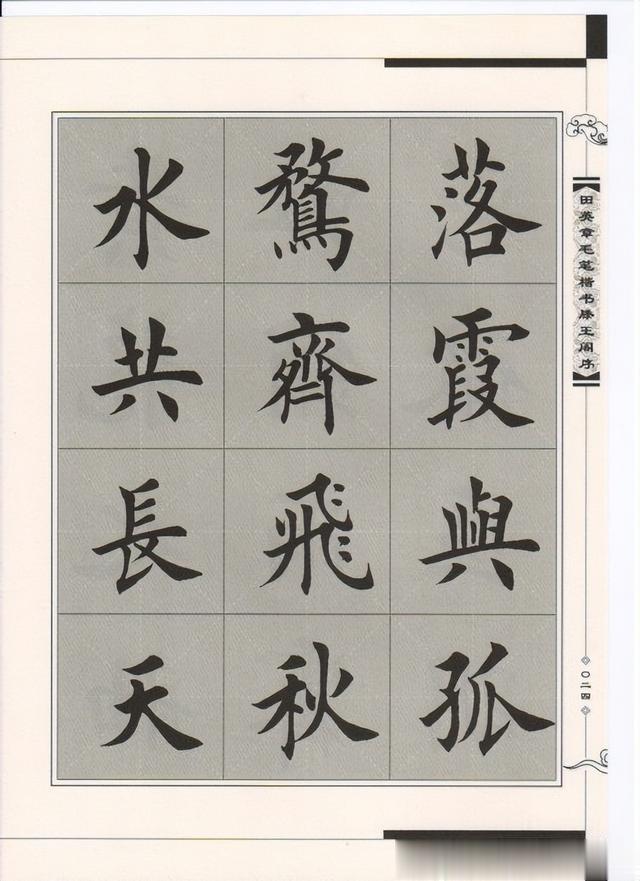 落霞與孤
鶩齊飛秋
水共長天
田英章毛笔楷书滕王阁序
〇二四